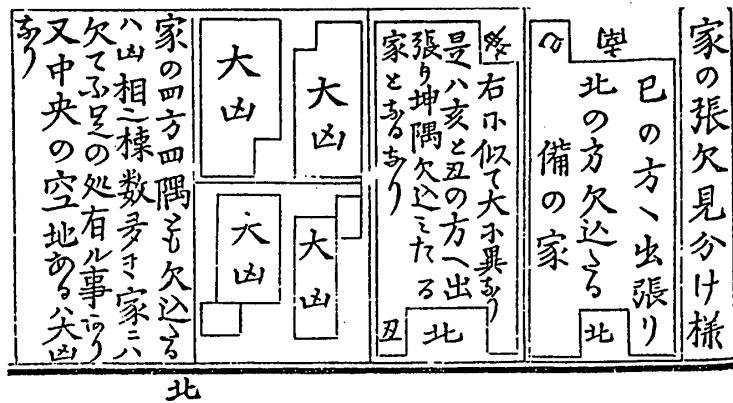 家の張欠見分け様
巳の方へ出張り
北の方欠込たる
備の家
北
右に似て大に異なり
是ハ亥と丑の方へ出
張り坤隅欠込ミたる
家となるなり
北
丑
大凶
大凶
大凶
大凶
家の四方四隅とも欠込たる
ハ凶相之棟数多き家ニハ
欠て不足の処有ル事あり
又中央の空地あるハ大凶
なり
北